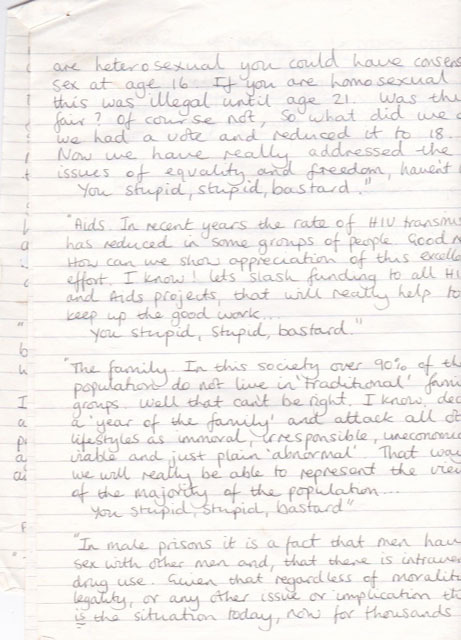 are heterosexual you could have consens
sex at age 16. If you are homosexual
this was illegal until age 21. Was th
fair? Of course not, so what did we
we had a vote and reduced it to 18.
Now we have really addressed the
issues of equality and freedom, haven't
You stupid, stupid, bastard."
"Aids. In recent years the rate of HIV transmi
has reduced in some groups of people. Good
How can we show appreciation of this excelle
effort. I know! lets slash funding to all HI
and Aids projects, that will really help to
keep up the good work...
You stupid, stupid, bastard."
"The family. In this society over 90% of th
population do not live in 'traditional' fami
groups. Well that can't be right. I know, dec
a 'year of the family' and attack all ot
lifestyles as immoral, irresponsible, uneconomic
viable and just plain 'abnormal'. That way
we will really be able to represent the view
of the majority of the population...
You stupid, stupid, bastard"
"In male prisons it is a fact that men hav
sex with other men and, that there is intrave
drug use. Given that regardless of moralit
legality, or any other issue or implication th
is the situation today, now for thousands